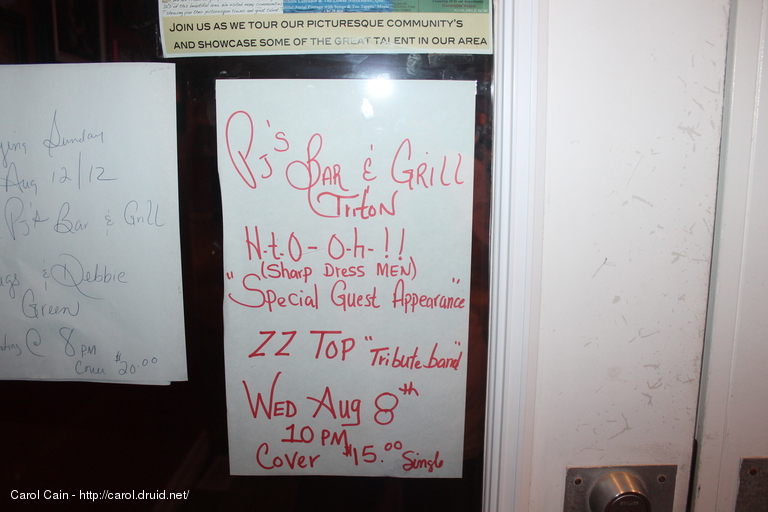 JOIN US AS WE TOUR OUR PICTURESQUE COMMUNITY'S
AND SHOWCASE SOME OF THE GREAT TALENT IN OUR AREA
Sunday
Aug 12/12
PJ's Bar & Grill
& Debbie
Green
@ 8 PM
Cover $20.00
PJ's BAR & GRILL
Triton
H-t-O- O-h-!!
(Sharp Dress MEN)
"Special Guest Appearance"
ZZ TOP "Tribute band"
WED Aug 8th
10 PM
Cover $15.00 Single
Carol Cain - http://carol.druid.net/